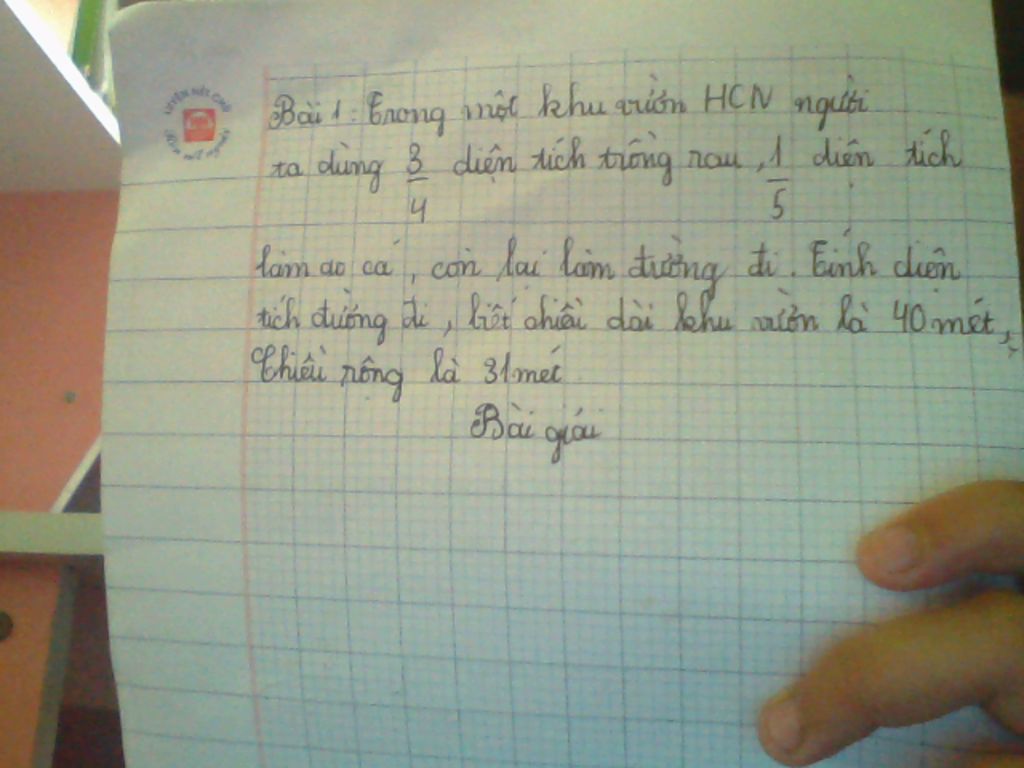 LUYỆN NÉT CHỮ
Bài 1: Trong một khu vườn HCN người
ta dùng 3/4 diện tích trồng rau, 1/5 diện tích
làm ao cá, còn lại làm đường đi. Tính diện
tích đường đi, biết chiều dài khu vườn là 40 mét,
Chiều rộng là 31 mét
Bài giải